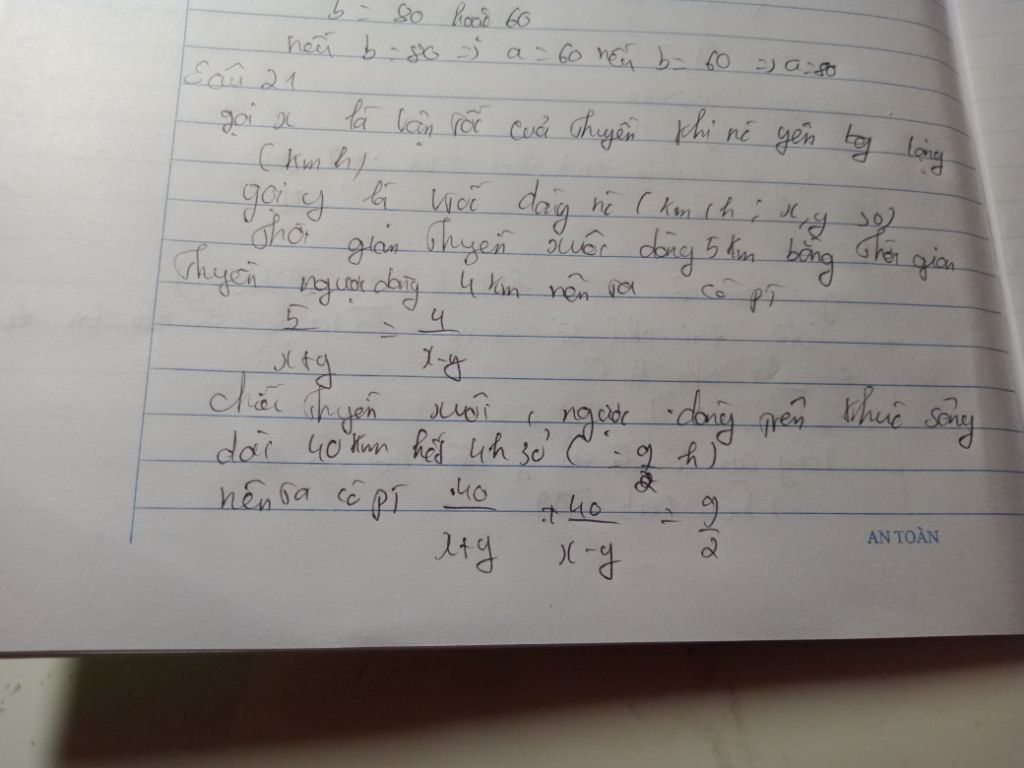 b = 80 hoặc 60
nếu b = 80 => a = 60 nếu b = 60 => a = 80
Câu 21
gọi x là vận tốc của thuyền khi nc yên lặng
(km/h)
gọi y là vtốc dòng nc (km/h; x,y >0)
Thời gian thuyền xuôi dòng 5 km bằng thời gian
Thuyền ngược dòng 4 km nên ta có pt
5/(x+y) = 4/(x-y)
chiếc thuyền xuôi, ngược dòng trên khúc sông
dài 40 km hết 4h 30' (= 9/2 h)
nên ta có pt 40/(x+y) + 40/(x-y) = 9/2
AN TOÀN